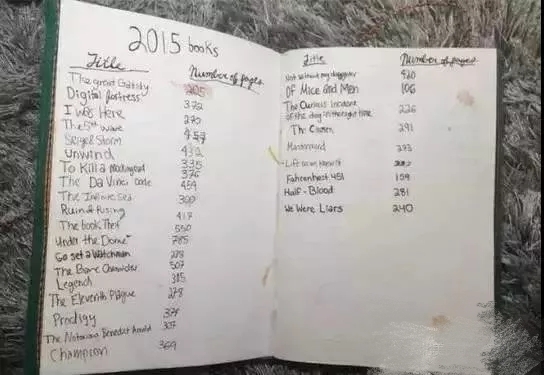 2015 books
Title Number of pages
The great Gatsby 205
Digital fortress 372
I Was Here 270
The 5th wave 457
Seige & Storm 432
Unwind 335
To Kill a Mockingbird 376
The Da Vinci code 454
The Infinite Sea 300
Ruin & Rising 417
The book Thief 550
Under the Dome 785
Go set a Watchman 278
The Bane Chronicles 507
Legend 305
The Eleventh Plague 278
Prodigy 371
The Notorious Benedict Arnold 307
Champion 369
Title Number of pages
Not without my daughter 420
Of Mice and Men 106
The Curious Incident
of the dog in the night time 226
The Chosen 291
293
Life
Fahrenheit 451 159
Half-Blood 281
We Were Liars 240